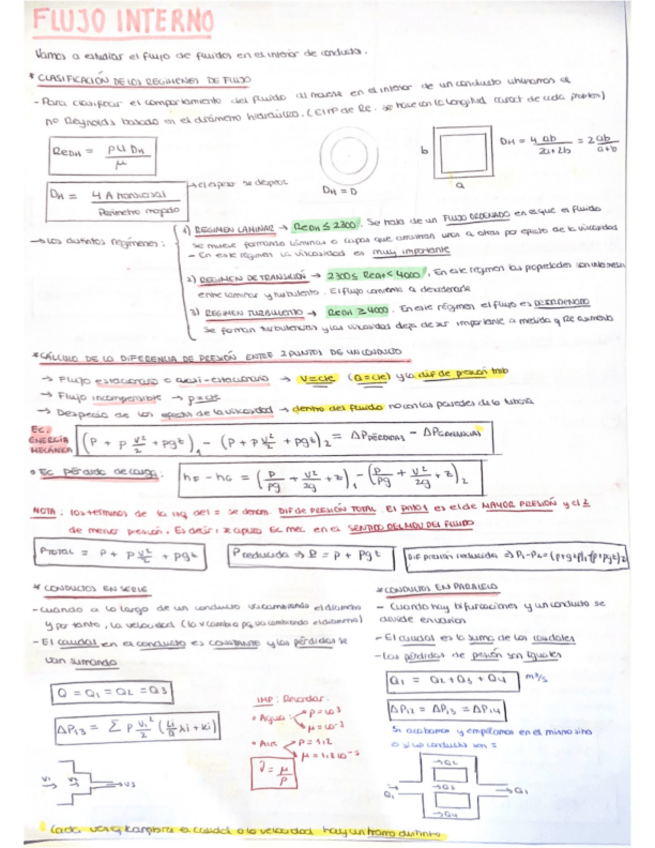 FLUJO INTERNO
Vamos a estudiar el flujo de fluidos en el interior de conductos.
* CLASIFICACIÓN DE LOS REGIMENES DE FLUJO
- Para clasificar el comportamiento del fluido al moverse en el interior de un conducto utilizamos el
nº Reynolds basado en el diámetro hidráulico. (El nº de Re. se hace con la longitud caract de cada problema)
Re DH = ρ U DH / μ
DH = 4 A transversal / Perímetro mojado
→ el espesor se desprecia
DH = D
b
a
DH = 4 ab / 2a+2b = 2 ab / a+b
→ Los distintos regímenes:
1) REGIMEN LAMINAR → ReDH ≤ 2300. Se trata de un FLUJO ORDENADO en el que el fluido
se mueve formando láminas o capas que arrastran unas a otras por efecto de la viscosidad
- En este régimen la viscosidad es muy importante
2) REGIMEN DE TRANSICIÓN → 2300 ≤ ReDH < 4000. En este régimen las propiedades son intermedias
entre laminar y turbulento. El flujo comienza a desordenarse
3) REGIMEN TURBULENTO → ReDH ≥ 4000. En este régimen el flujo es DESORDENADO
Se forman turbulencias y la viscosidad deja de ser importante a medida q Re aumenta
* CÁLCULO DE LA DIFERENCIA DE PRESIÓN ENTRE 2 PUNTOS DE UN CONDUCTO
→ Flujo estacionario o quasi-estacionario → V=cte (Q=cte) y la dif de presion tmb
→ Flujo incompresible → ρ=cte
→ Desprecio de los efectos de la viscosidad → dentro del fluido no con las paredes de la tubería
EC. ENERGÍA MECÁNICA
(P + ρ v²/2 + ρgz)₁ - (P + ρ v²/2 + ρgz)₂ = ΔP PÉRDIDAS - ΔP GANANCIAS
• Ec pérdida de carga:
hF - hG = (P/ρg + v²/2g + z)₁ - (P/ρg + v²/2g + z)₂
NOTA: los términos de la izq del = se denom. DIF DE PRESIÓN TOTAL. El pto 1 es el de MAYOR PRESIÓN y el 2
de menor presión. Es decir, aplico Ec mec en el SENTIDO DEL MOV DEL FLUIDO
P TOTAL = P + ρ v²/2 + ρgz
P reducida ⇒ P = P + ρgz
DIF presión reducida ⇒ P₁-P₂ = (P+ρgz)₁-(P+ρgz)₂
* CONDUCTOS EN SERIE
- Cuando a lo largo de un conducto va cambiando el diametro
y por tanto, la velocidad (la v cambia pq va cambiando el diametro)
- El caudal en el conducto es CONSTANTE y las pérdidas se
van sumando
Q = Q1 = Q2 = Q3
ΔP13 = Σ ρ Vi²/2 (Li/Di λi + ki)
V1
V2
V3
IMP: Recordar:
• Agua: ρ = 10³
μ = 10⁻³
• Aire ρ = 1,2
μ = 1,2·10⁻⁵
ν = μ/ρ
* CONDUCTOS EN PARALELO
- Cuando hay bifurcaciones y un conducto se
divide en varios
- El caudal es la suma de los caudales
- Las pérdidas de presión son iguales
Q1 = Q2 + Q3 + Q4
m³/s
ΔP12 = ΔP13 = ΔP14
Si acabamos y empezamos en el mismo sitio
→Q2
→Q3
→Q4
Q1
Q1
! Cada vez q cambiara el caudal o la velocidad hay un tramo distinto